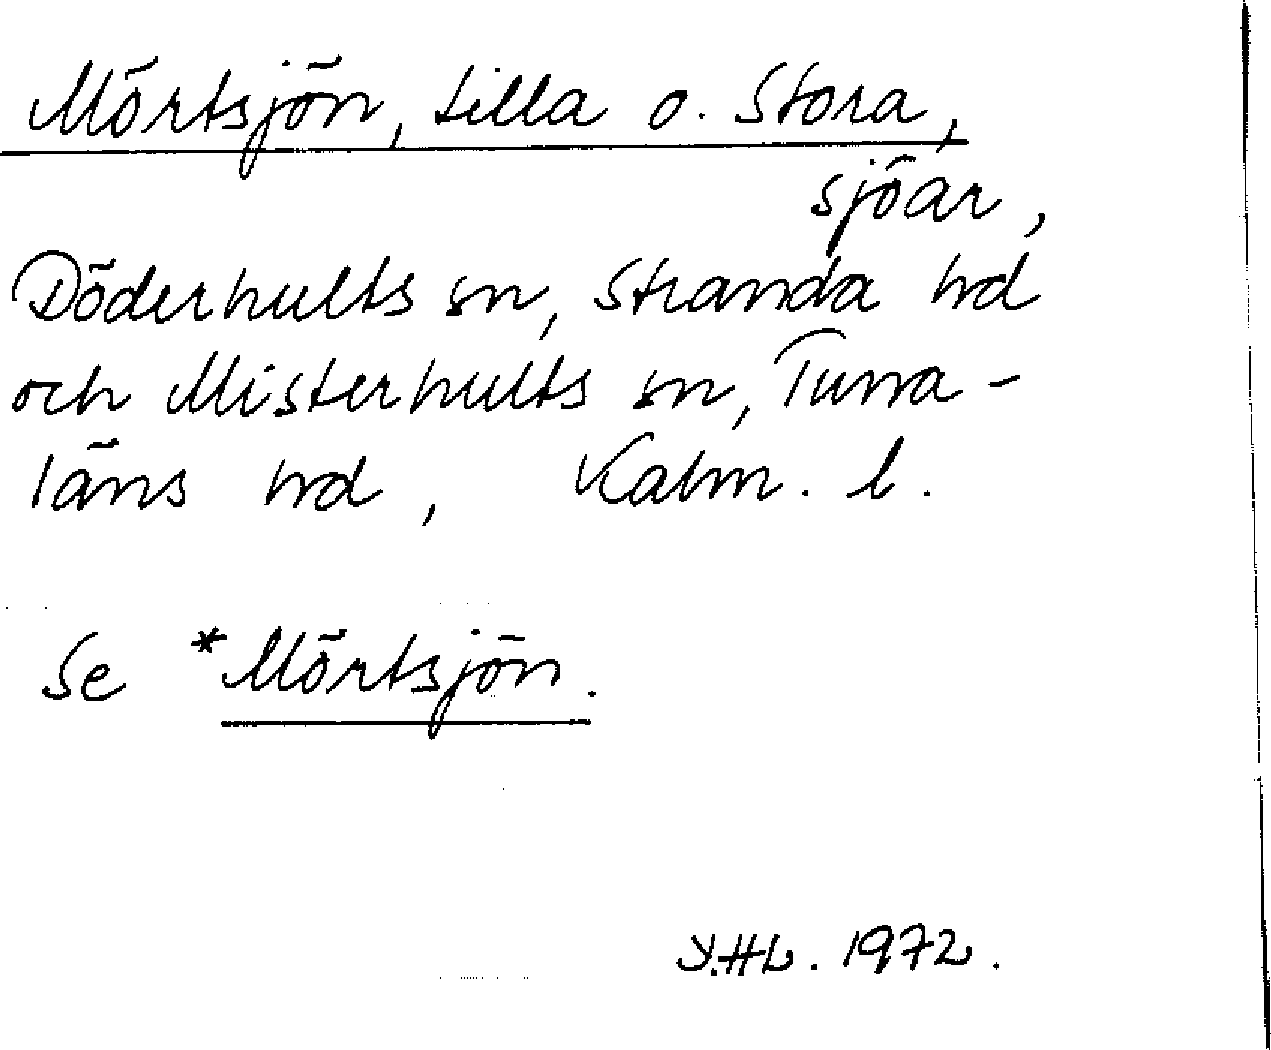 Mörtsjön, Lilla o. Stora,
sjöar,
Döderhults sn, Stranda hd
och Misterhults sn, Tuna-
läns hd, Kalm. l.
Se *Mörtsjön.
Y.HL. 1972.